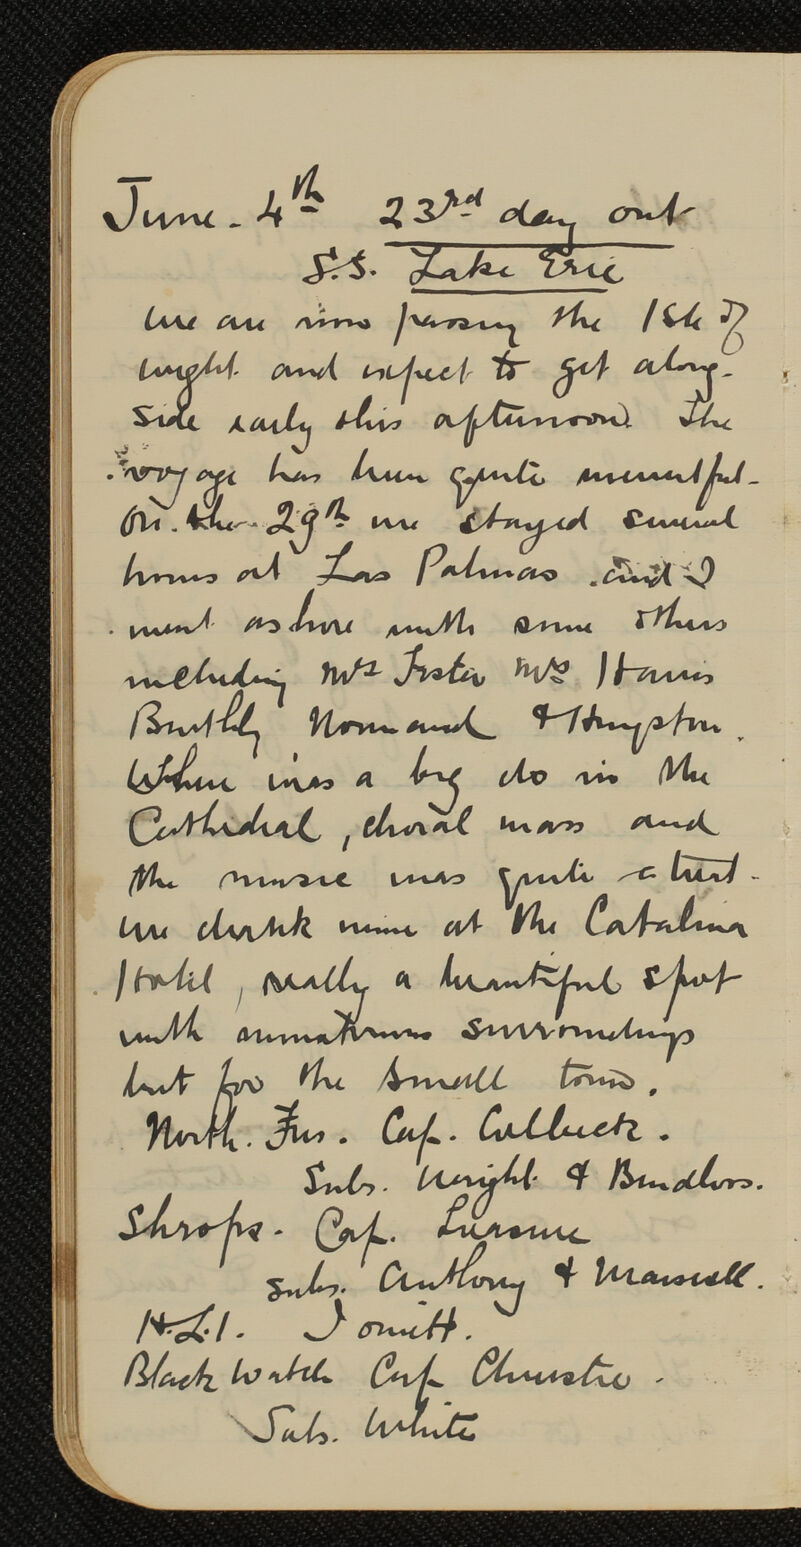 June. 4th 23rd day out
S.S. Lake Erie
we are now passing the Isle of
wight and expect to get along-
side early this afternoon. The
voyage has been quite uneventful-
On the 29th we stayed several
hours at Las Palmas and I
went ashore with some others
including Mrs Foster Mrs Harris
Normand & Hingston.
There was a big do in the
Cathedral, choral mass and
the music was quite a treat.
we drank wine at the Catalina
Hotel, really a beautiful spot
with surroundings
but for the small town.
North. Fus. Cap. Colbeck.
Subs. Wright &
Shrops. Cap.
subs. Anthony &
H.L.I. I omitt.
Black Watch Cap Christie.
Subs. White